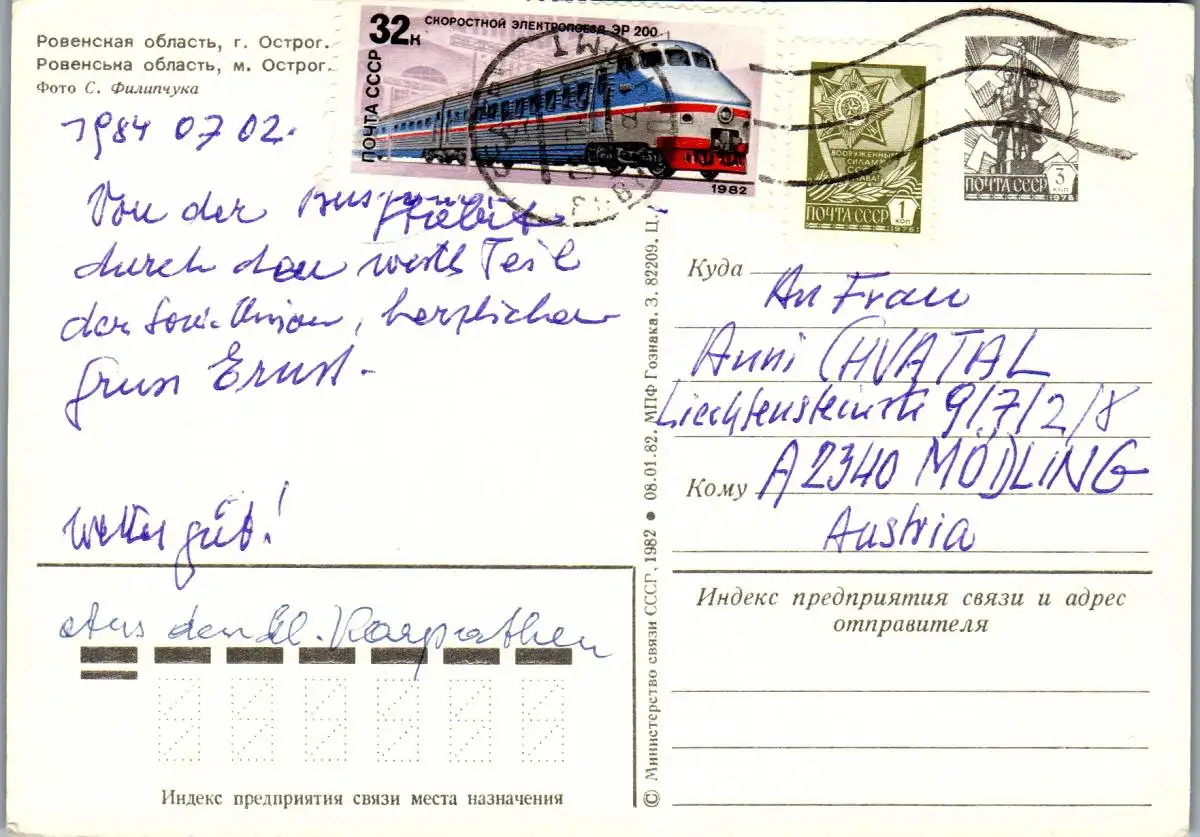 Ровенская область, г. Острог.
Ровенська область, м. Острог.
Фото С. Филипчука
1984 07 02.
Von der
durch den westl Teil
der Sow. Union, herzlichen
Gruss Ernst.
Wetter gut!
Aus den Kl. Karpathen
Индекс предприятия связи места назначения
32к
СКОРОСТНОЙ ЭЛЕКТРОПОЕЗД ЭР 200
ПОЧТА СССР
1982
ВООРУЖЕННЫМ
СИЛАМ
СЛАВА!
ПОЧТА СССР
1 КОП
1976
ПОЧТА СССР
3 коп
1976
© Министерство связи СССР, 1982 • 08.01.82. МПФ Гознака. З. 82209. Ц.
Куда
An Frau
Anni CHVATAL
Liechtensteinstr 9/7/2/8
Кому
A 2340 MÖDLING
Austria
Индекс предприятия связи и адрес
отправителя